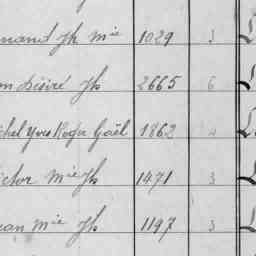 nand Jh Mie 1029 3
n Désiré Jh 2665 6
chel Yves Roger Gaël 1862 4
ictor Mie Jh 1471 3
ean Mie Jh 1197 3